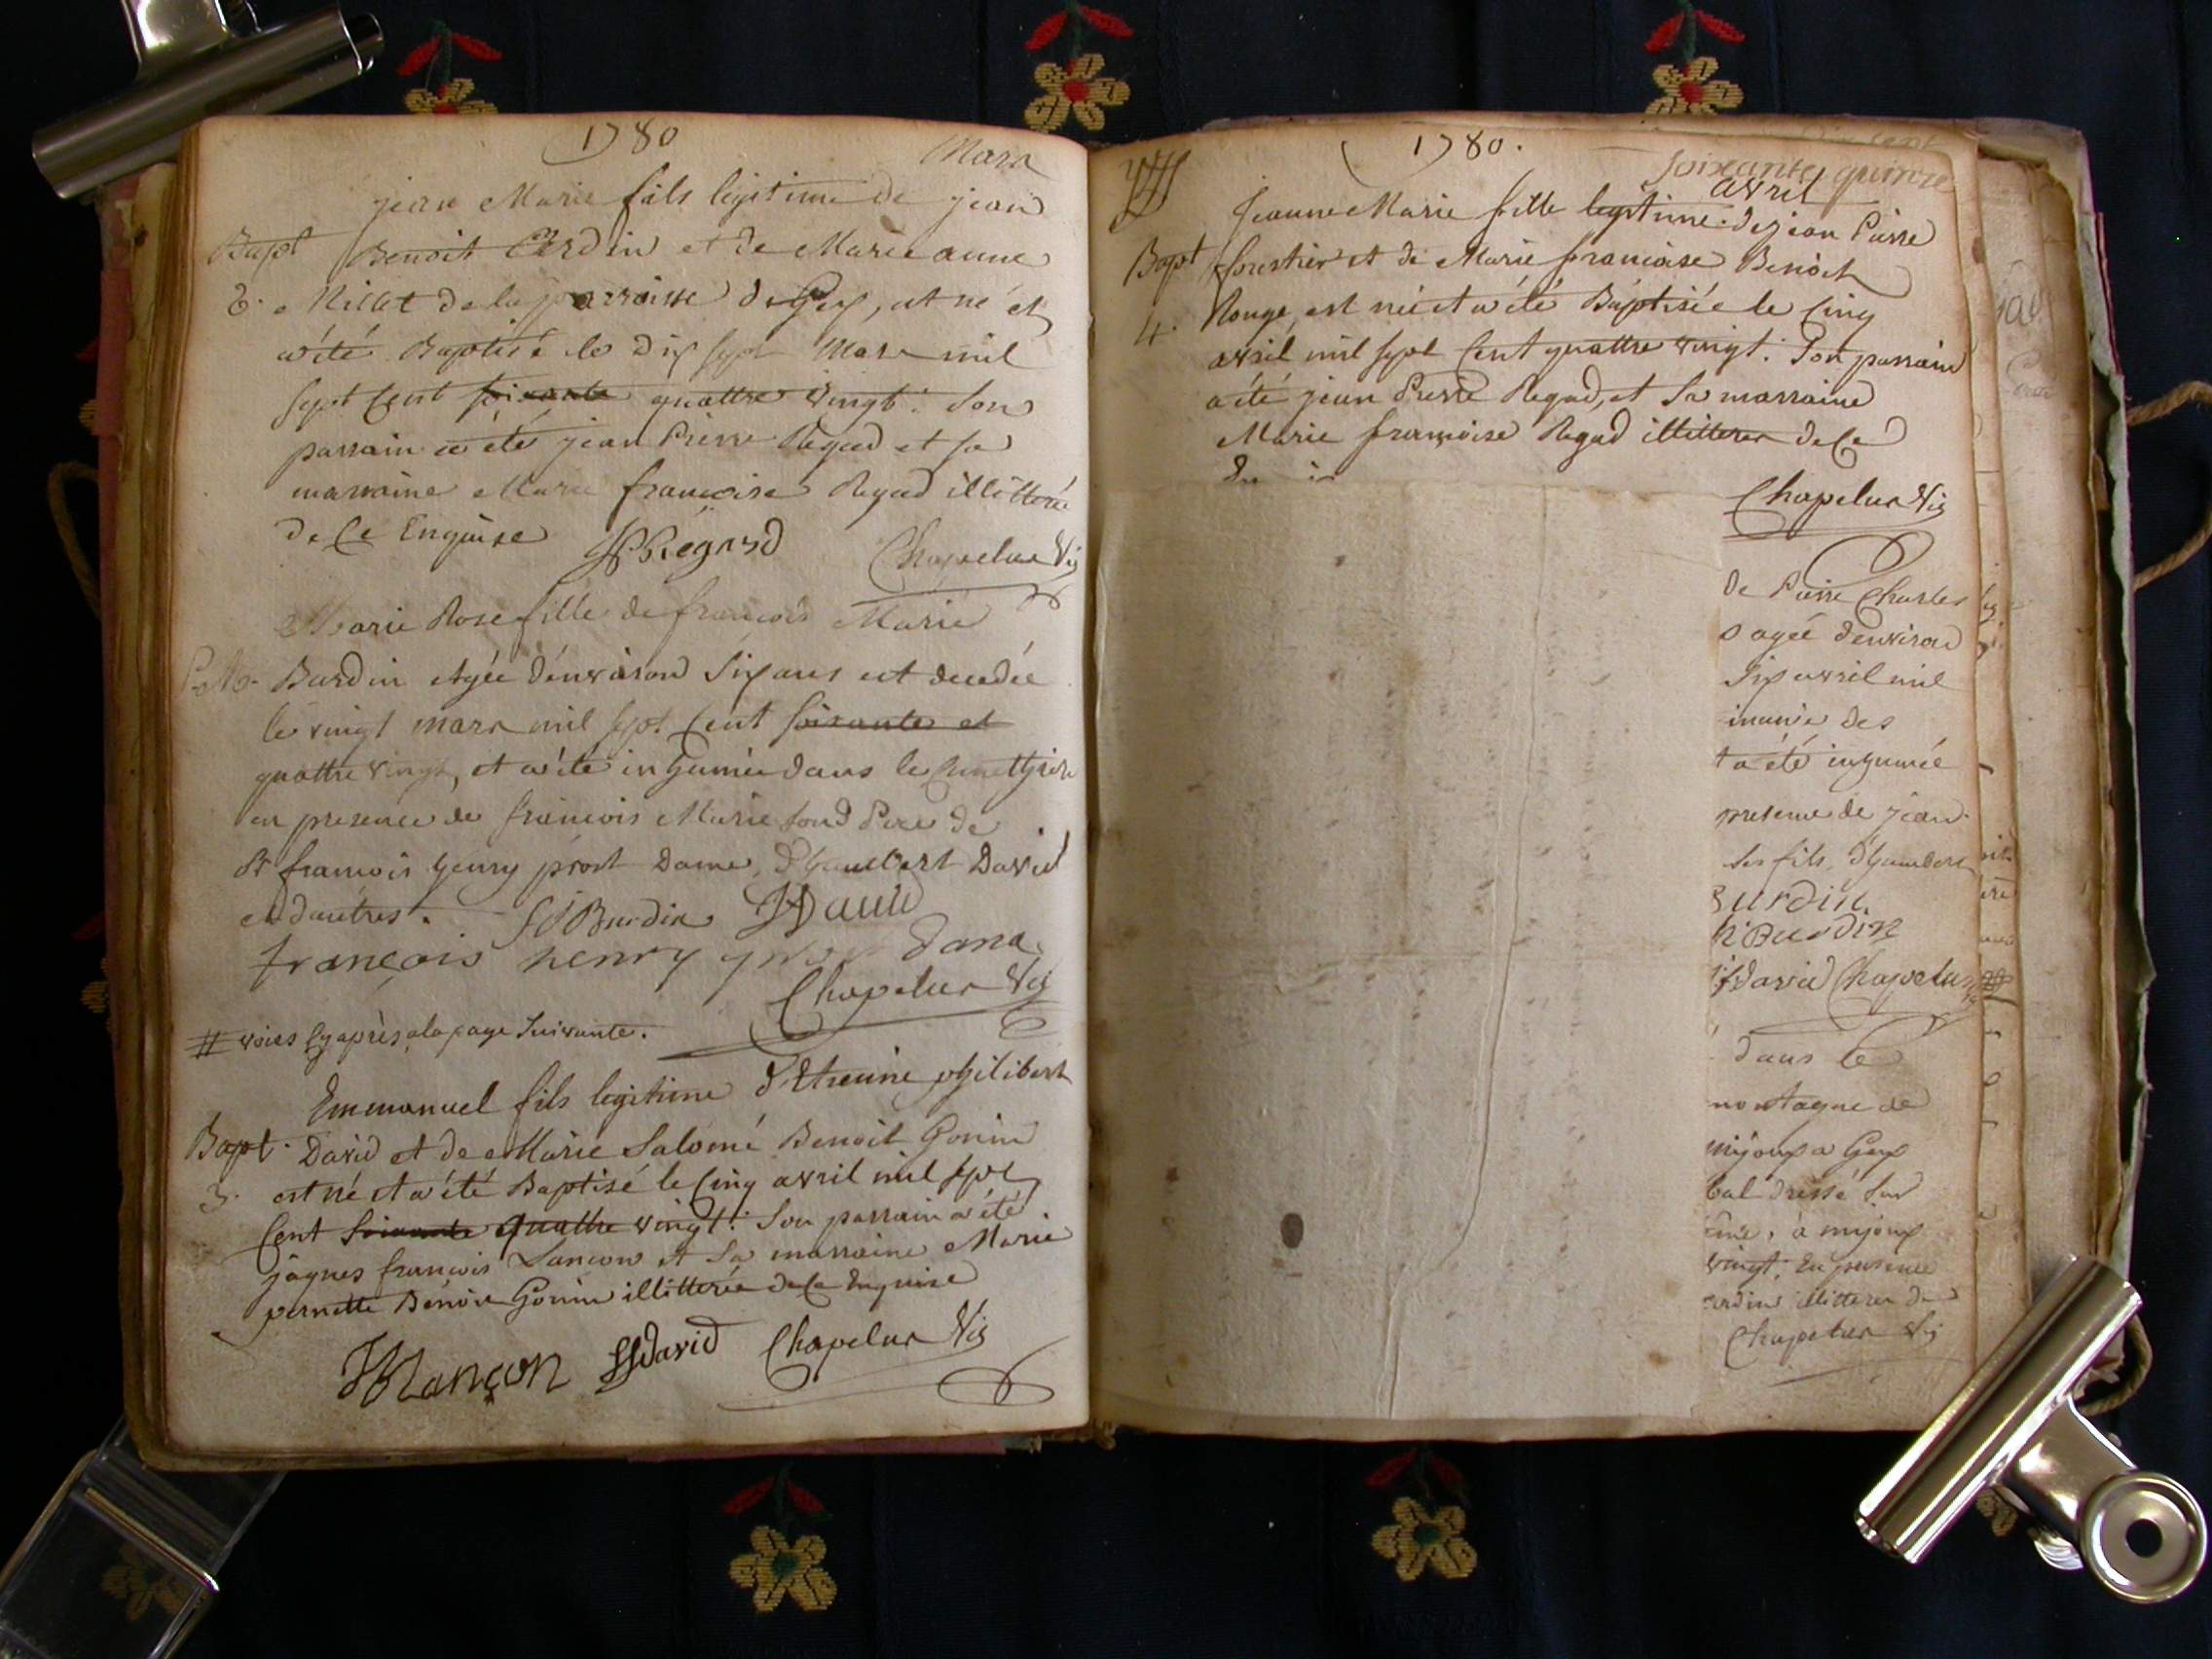 1780
Mars
jean Marie fils legitime de jean
Bapt Benoit Cardin et de Marie anne
Millet de la parroisse de Gex, est né et
a été Baptisé le dix sept Mars mil
sept Cent soixante quattre vingt. Son
parrain a été jean Pierre Regad et sa
marraine Marie francoise Regad illitterée
de Ce Enquise JPRegard Chapelur Vic
Marie Rose fille de francois Marie
Burdin Agée d'environ Six ans est decedée
le vingt mars mil sept Cent soixante et
quattre vingt, et a été inhumée dans le Cimethiere
en presence de francois Marie sond Pere de
Sr francois henry prost Dame, d'humbert David
et dautres. Burdin David
françois henry prost dame
Chapelur Vic
# voies Cy après a la page Suivante.
Emmanuel fils legitime d'Etienne philibert
Bapt. David et de Marie Salomé Benoit Gonin
3. est né et a été Baptisé le Cinq avril mil sept
Cent Soixante quattre vingt. Son parrain a été
jaques francois Lancon et Sa marraine Marie
pernette Benoit Gonin illitterée de Ce Enquise
Lançon David Chapelur Vic
1780.
soixante quinze
avril
Jeanne Marie fille legitime de jean Pierre
Bapt forestier et de Marie francoise Benoit
4. Rouge, est née et a été Baptisée le Cinq
avril mil sept Cent quattre vingt. Son parrain
a été jean Pierre Regad, et Sa marraine
Marie françoise Regad illitterer de Ce
Chapelur Vic
de Pierre Charles
agée d'environ
Six avril mil
munie des
t a été inhumée
presence de jean
ses fils, d'humbert
Burdin
Burdin
David Chapelur
dans le
montagne de
mijoux a Gex
bal dressé sur
à mijoux
vingt. En presence
illitterer de
Chapelur Vic